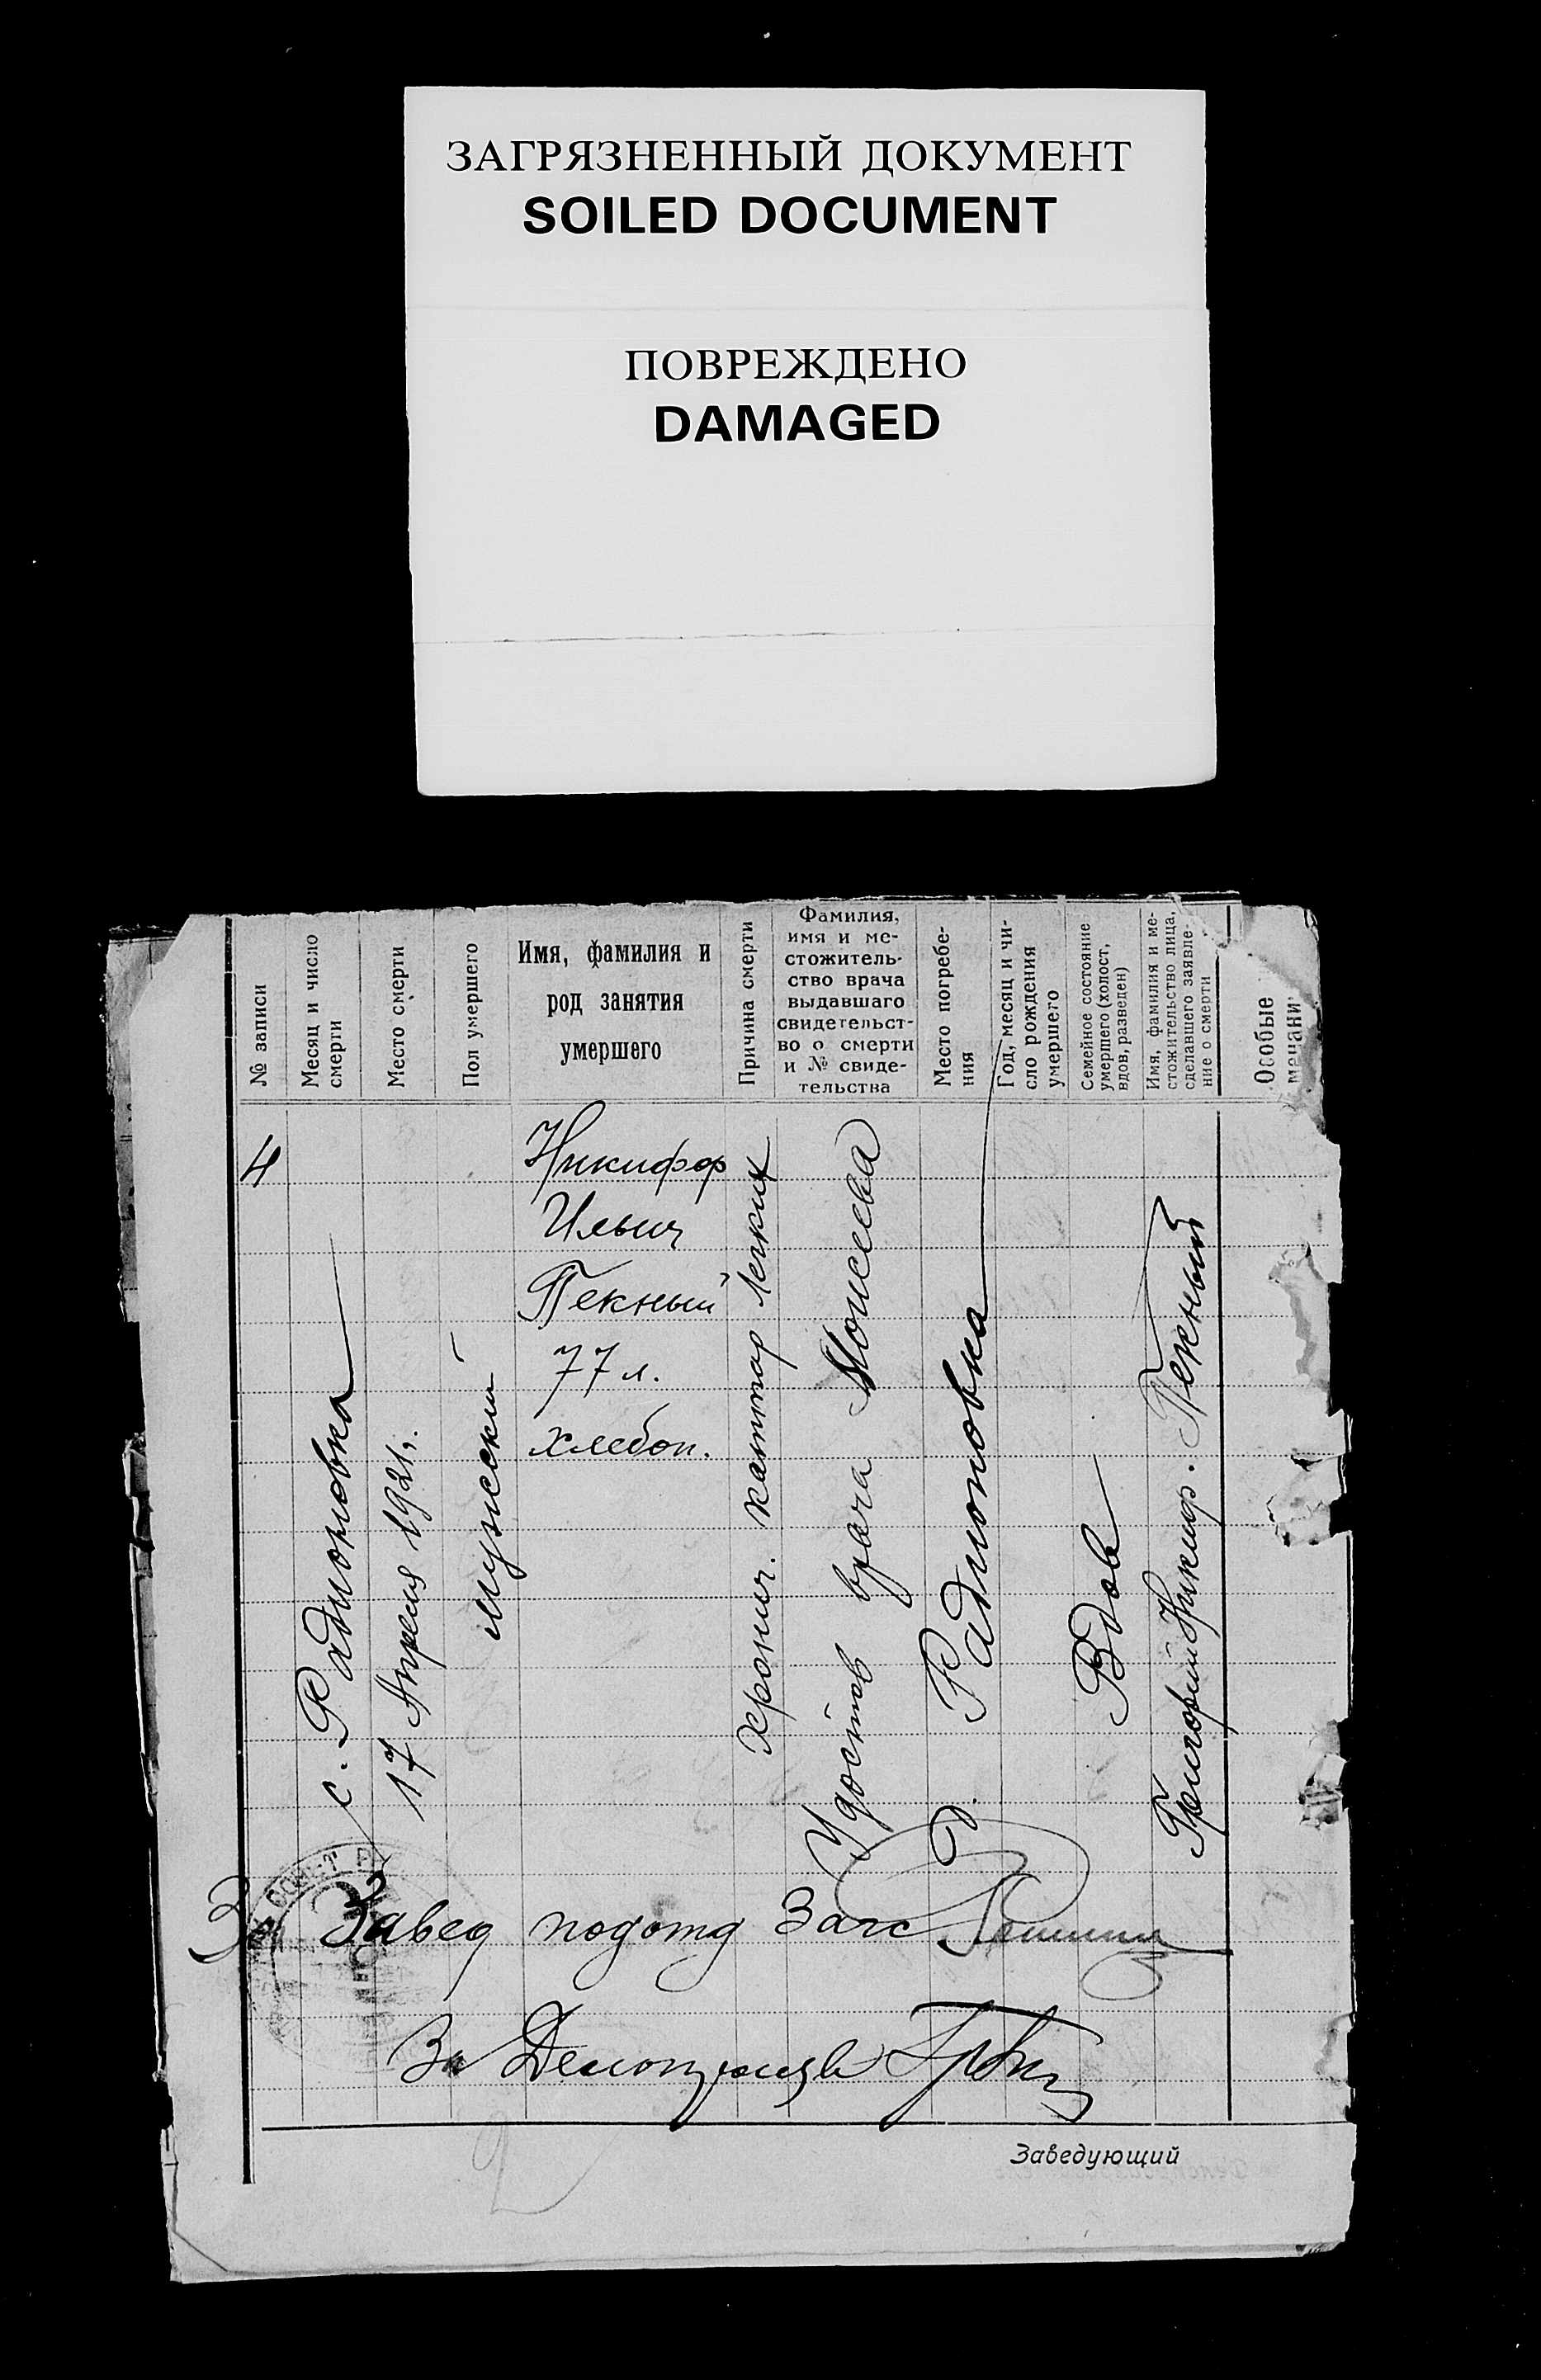 ЗАГРЯЗНЕННЫЙ ДОКУМЕНТ
SOILED DOCUMENT
ПОВРЕЖДЕНО
DAMAGED
№ записи
Месяц и число
смерти
Место смерти
Пол умершего
Имя, фамилия и
род занятия
умершего
Причина смерти
Фамилия,
имя и ме-
стожитель-
ство врача
выдавшаго
свидетельст-
во о смерти
и № свиде-
тельства
Место погребе-
ния
Год, месяц и чи-
сло рождения
умершего
Семейное состояние
умершего (холост,
вдов, разведен)
Имя, фамилия и ме-
стожительство лица,
сделавшего заявле-
ние о смерти
Особые
мечани
4
с. Радионовка
17 Апреля 1921 г.
мужской
Никифор
Ильич
Пекный
77 л.
хлебоп.
хронич. каттар легких
Удостов врача Моисеева
Радионовка
Вдов
Григорий Никиф. Пекный
За Завед подотд Загс
За
Заведующий